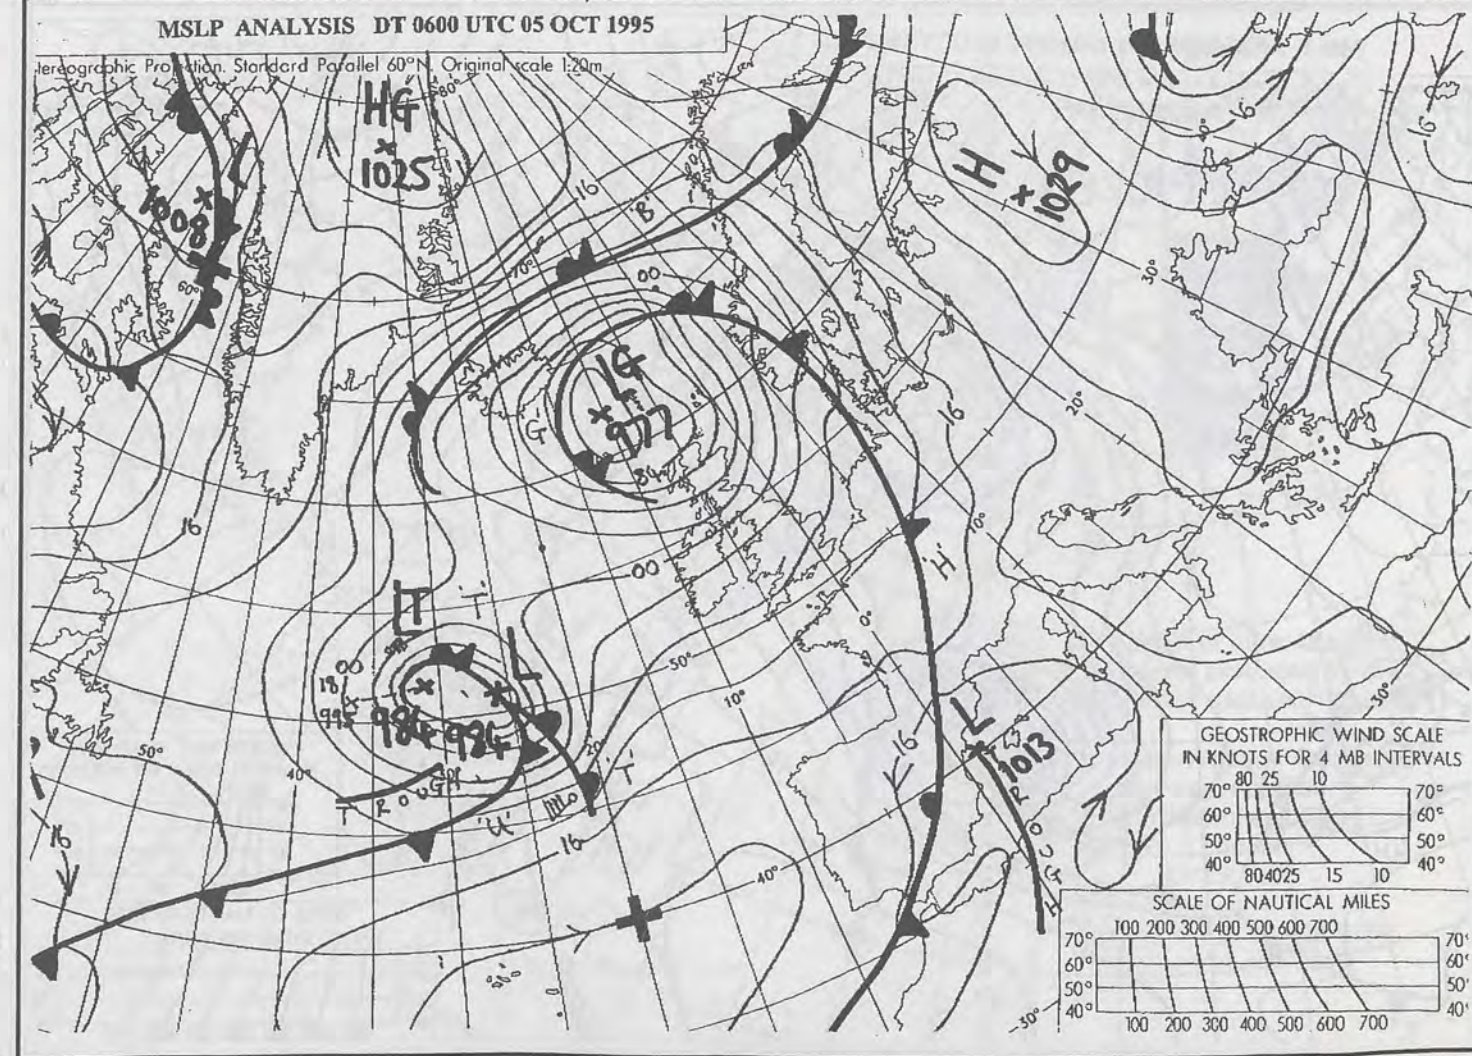 MSLP ANALYSIS DT 0600 UTC 05 OCT 1995
tereographic Projection. Standard Parallel 60°N. Original scale 1:20m
80°
HG
1025
L
1008
60°
16
'B'
70°
00
H
1029
40°
16
16
30°
20°
16
10°
'H'
0°
LG
977
'G'
84
16
00
50°
10°
LT
'T'
00
995
984
L
984
50°
40°
20
TROUGH
'U'
'T'
16
16
40°
16
L
1013
TROUGH
30°
30°
GEOSTROPHIC WIND SCALE
IN KNOTS FOR 4 MB INTERVALS
80 25 10
70° 70°
60° 60°
50° 50°
40° 40°
80 40 25 15 10
SCALE OF NAUTICAL MILES
100 200 300 400 500 600 700
70° 70°
60° 60°
50° 50°
40° 40°
100 200 300 400 500 600 700